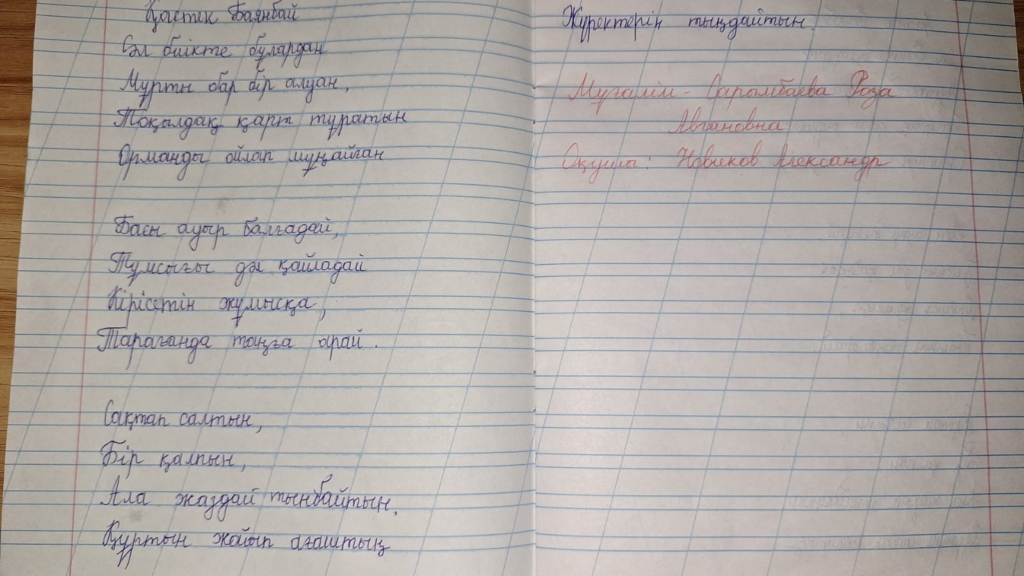 Қастек Баянбай
Сәл биікте бұлардан
Мұрты бар бір алуан,
Тоқылдақ қарт тұратын
Орманды ойлап мұңайған
Басын ауыр балғадай,
Тұмсығы дәл қайладай
Кірісетін жұмысқа,
Тарағанда таңға арай.
Сақтап салтын,
Бір қалпын,
Ала жаздай тынбайтын.
Құртын жойып ағаштың
Жүректерің тыңдайтын.
Мұғалім - Саромбаева Роза
Авгановна
Оқушы: Новиков Александр